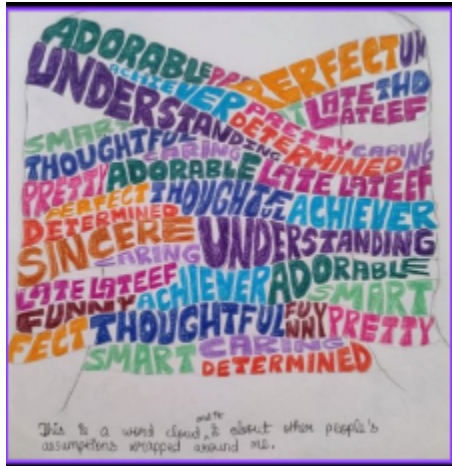 ADORABLE PERFECT UN
ACHIEVER PRETTY LATE THO
UNDERSTANDING DETERMINED LATEEF
SMART CARING
THOUGHTFUL CARING
PRETTY ADORABLE LATE LATEEF
PERFECT THOUGHTFUL ACHIEVER
DETERMINED
SINCERE UNDERSTANDING
CARING
LATE LATEEF ACHIEVER ADORABLE
FUNNY SMART
FECT THOUGHTFUL FUNNY PRETTY
SMART CARING
DETERMINED
This is a word cloud, and it is about other people's
assumptions wrapped around me.